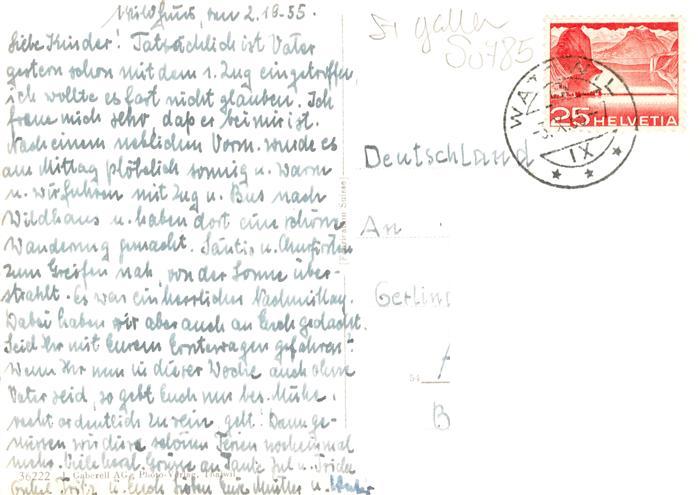 Wildhaus, den 2.10.55.
Liebe Kinder! Tatsächlich ist Vater
gestern schon mit dem 1. Zug eingetroffen,
ich wollte es fast nicht glauben. Ich
freue mich sehr, daß er bei mir ist.
Nach einem neblichen Vorm. wurde es
am Mittag plötzlich sonnig u. warm
u. wir fuhren mit Zug u. Bus nach
Wildhaus u. haben dort eine schöne
Wanderung gemacht. Säntis u. Churfirsten
zum Greifen nah, von der Sonne über-
strahlt. Es war ein herrlicher Nachmittag.
Dabei haben wir aber auch an Euch gedacht.
Seid Ihr mit Eurem Erntewagen gefahren?
Wenn Ihr nun in dieser Woche auch ohne
Vater seid, so gebt Euch nur bes. Mühe,
recht ordentlich zu sein, gelt! Dann ge-
niessen wir diese schönen Ferien nocheinmal
mehr. Viele herzl. Grüsse an Tante Jul u. Frieda
Onkel Fritz u. Euch Lieben Eure Mutter u. Vater
36222 J. Gaberell AG., Photo-Verlag, Thalwil
St gallen
Su 785
25 HELVETIA
WATTWIL
IX
Deutschland
An
Gerling
54
B